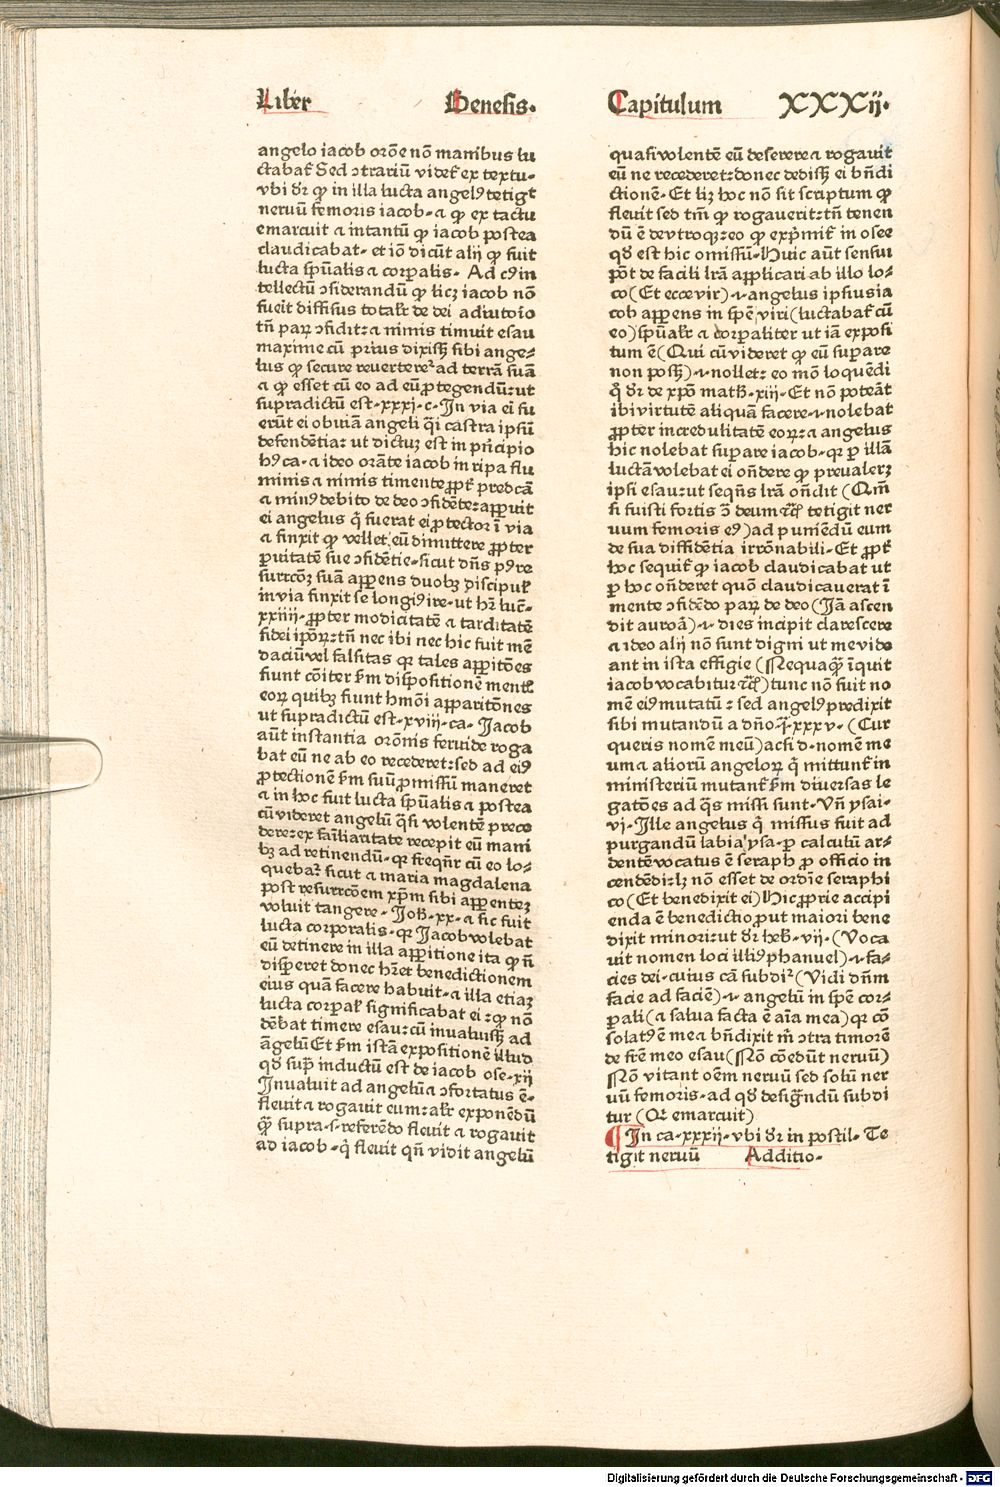 Liber Genesis. Capitulum XXXij.
angelo iacob orōe nō manibus lu
ctabat᷑ Sed ↄtrariū videt᷑ ex textu.
vbi dr̄ ꝙ in illa lucta angelꝰ tetigit
neruū femoris iacob. ⁊ ꝙ ex tactu
emarcuit ⁊ intantū ꝙ iacob postea
claudicabat. et iō dicūt alij ꝙ fuit
lucta spūalis ⁊ corꝑalis. Ad cꝰ in
tellectū ↄsiderandū ꝙ licꝫ iacob nō
fuerit diffisus totalr̄ de dei adiutoio
tn̄ paꝝ ↄfidit: ⁊ nimis timuit esau
maxime cū prius dixissꝫ sibi ange-
lus ꝙ secure reverteret᷑ ad terrā suā
⁊ ꝙ esset cū eo ad eū ꝓtegendū: ut
supradictū est. xxxj. c. In via ei fu
erūt ei obuiā angeli q̄i castra ipsū
defendētia: ut dictuꝫ est in pn̄cipio
hꝰ ca. ⁊ ideo orāte iacob in ripa flu
minis ⁊ nimis timente ꝓpt̄ predcā
⁊ minꝰ debito de deo ↄfidēte: apꝑuit
ei angelus q̇ fuerat ei ꝓtector ī via
⁊ finxit ꝙ vellet eū dimittere ꝓpter
ꝑuitatē sue ↄfidētie. sicut dn̄s pꝰ re
surrcōꝫ suā apꝑens duobꝫ discipul̄
in via finxit se longiꝰ ire. ut hr̄ luc̄.
xxiiij. ꝓpter modicitatē ⁊ tarditatē
fidei ip̄oꝝ: tn̄ nec ibi nec hic fuit mē
daciū vel falsitas qꝛ tales apꝑitōes
fiunt cōiter ẜm dispositionē mentꝭ
eoꝝ quibꝫ fiunt hmōi apparitōnes
ut supradictū est. xviij. ca. Jacob
aūt instantia orōnis feruide roga
bat eū ne ab eo recederet: sed ad eiꝰ
ꝓtectionē ẜm suū ꝓmissū maneret
⁊ in hoc fuit lucta spūalis ⁊ postea
cū videret angelū q̄si volentē prece
dere: ex fam̄liaritate recepit eū mani
bꝫ ad retinendū. qꝛ freqn̄r cū eo lo-
quebat᷑ sicut ⁊ maria magdalena
post resurrcōem xp̄m sibi apꝑenteꝫ
voluit tangere. Joh̄. xx. ⁊ sic fuit
lucta corporalis. qꝛ Jacob volebat
eū detinere in illa apꝑitione ita ꝙ n̄
disperet donec hr̄et benedictionem
eius quā facere habuit. ⁊ illa etiaꝫ
lucta corꝑal̄ significabat ei: ꝙ nō
dēbat timere esau: cū inualuisꝫ ad
āgelū Et ẜm istā expositionē illud
qd̄ supͣ inductū est de iacob ose. xij
Jnualuit ad angelū ⁊ ↄfortatus ē.
fleuit ⁊ rogauit eum: alr̄ exponēdū
q̄ꝫ supra. s. referēdo fleuit ⁊ rogauit
ad iacob. q̇ fleuit qn̄ vidit angelū
quasi volentē eū deserere ⁊ rogauit
eū ne recederet: donec dedisꝫ ei bn̄di
ctionē. Et lꝫ hoc nō sit scriptum ꝙ
fleuit sed tm̄ ꝙ rogauerit: tn̄ tenen
dū ē de vtroqꝫ: eo ꝙ expͥmit᷑ in osee
qd̄ est hic omissū. Huic aūt sensui
pōt de facili lr̄a apꝑlicari ab illo lo-
co (Et ecce vir) .i. angelus ipsius ia
cob apꝑens in spē viri (luctabat᷑ cū
eo) spūalr̄ ⁊ corporaliter ut iā exposi
tum ē (Qui cū videret ꝙ eū suꝑare
non possꝫ) .i. nollet: eo mō loquēdi
q̊ dr̄ de xp̄o math. xiij. Et nō poteāt
ibi virtutē aliquā facere .i. nolebat
ꝓpter incredulitatē eoꝝ: ⁊ angelus
hic nolebat suꝑare iacob. qꝛ ꝑ illā
luctā volebat ei on̄dere ꝙ preualerꝫ
ipsi esau: ut seqn̄s lr̄a on̄dit (Qm̄
si fuisti fortis ↄ̄ deum ⁊c̄) tetigit ner
uum femoris eꝰ) ad puniēdū eum
de sua diffidētia irrōnabili. Et ꝓpt̄
hoc sequit᷑ ꝙ iacob claudicabat ut
ꝑ hoc on̄deret quō claudicauerat ī
mente ↄfidēdo paꝝ de deo (Jā ascen
dit auroā) .i. dies incipit clarescere
⁊ ideo alij nō sunt digni ut me vide
ant in ista effigie (Nequaq̄ꝫ īquit
iacob vocabitur ⁊c̄) tunc nō fuit no
mē eiꝰ mutatū: sed angelꝰ predixit
sibi mutandū a dn̄o. j̄. xxxv. (Cur
queris nomē meū) ac si d. nomē me
um ⁊ alioꝝ angeloꝝ q̇ mittunt᷑ in
ministeriū mutant᷑ ẜm diuersas le
gatōes ad q̄s missi sunt. Vn̄ ysai.
vj. Jlle angelus q̇ missus fuit ad
purgandū labia ysa. ꝑ calculū ar-
dentē vocatus ē seraph ꝓ officio in
cendēdi: lꝫ nō esset de ordīe seraphi
co (Et benedixit ei) Hic ꝓprie accipi
enda ē benedictio ꝓut maiori bene
dixit minori: ut dr̄ heb̄. vij. (Voca
uit nomen loci illiꝰ phanuel) .i. fa-
cies dei. cuius cā subdit᷑ (Vidi dn̄m
facie ad faciē) .i. angelū in spē cor-
ꝑali (⁊ salua facta ē aīa mea) qꝛ cō
solatꝰ ē me ⁊ bn̄dixit m̄ ↄtra timorē
de fr̄e meo esau (Nō cōedūt neruū)
Nō vitant oēm neruū sed solū ner
uū femoris. ad qd̄ desigͣndū subdi
tur (Qꝛ emarcuit)
¶ Jn ca. xxxij. vbi dr̄ in postil. Te
tigit neruū Additio.
Digitalisierung gefördert durch die Deutsche Forschungsgemeinschaft - DFG